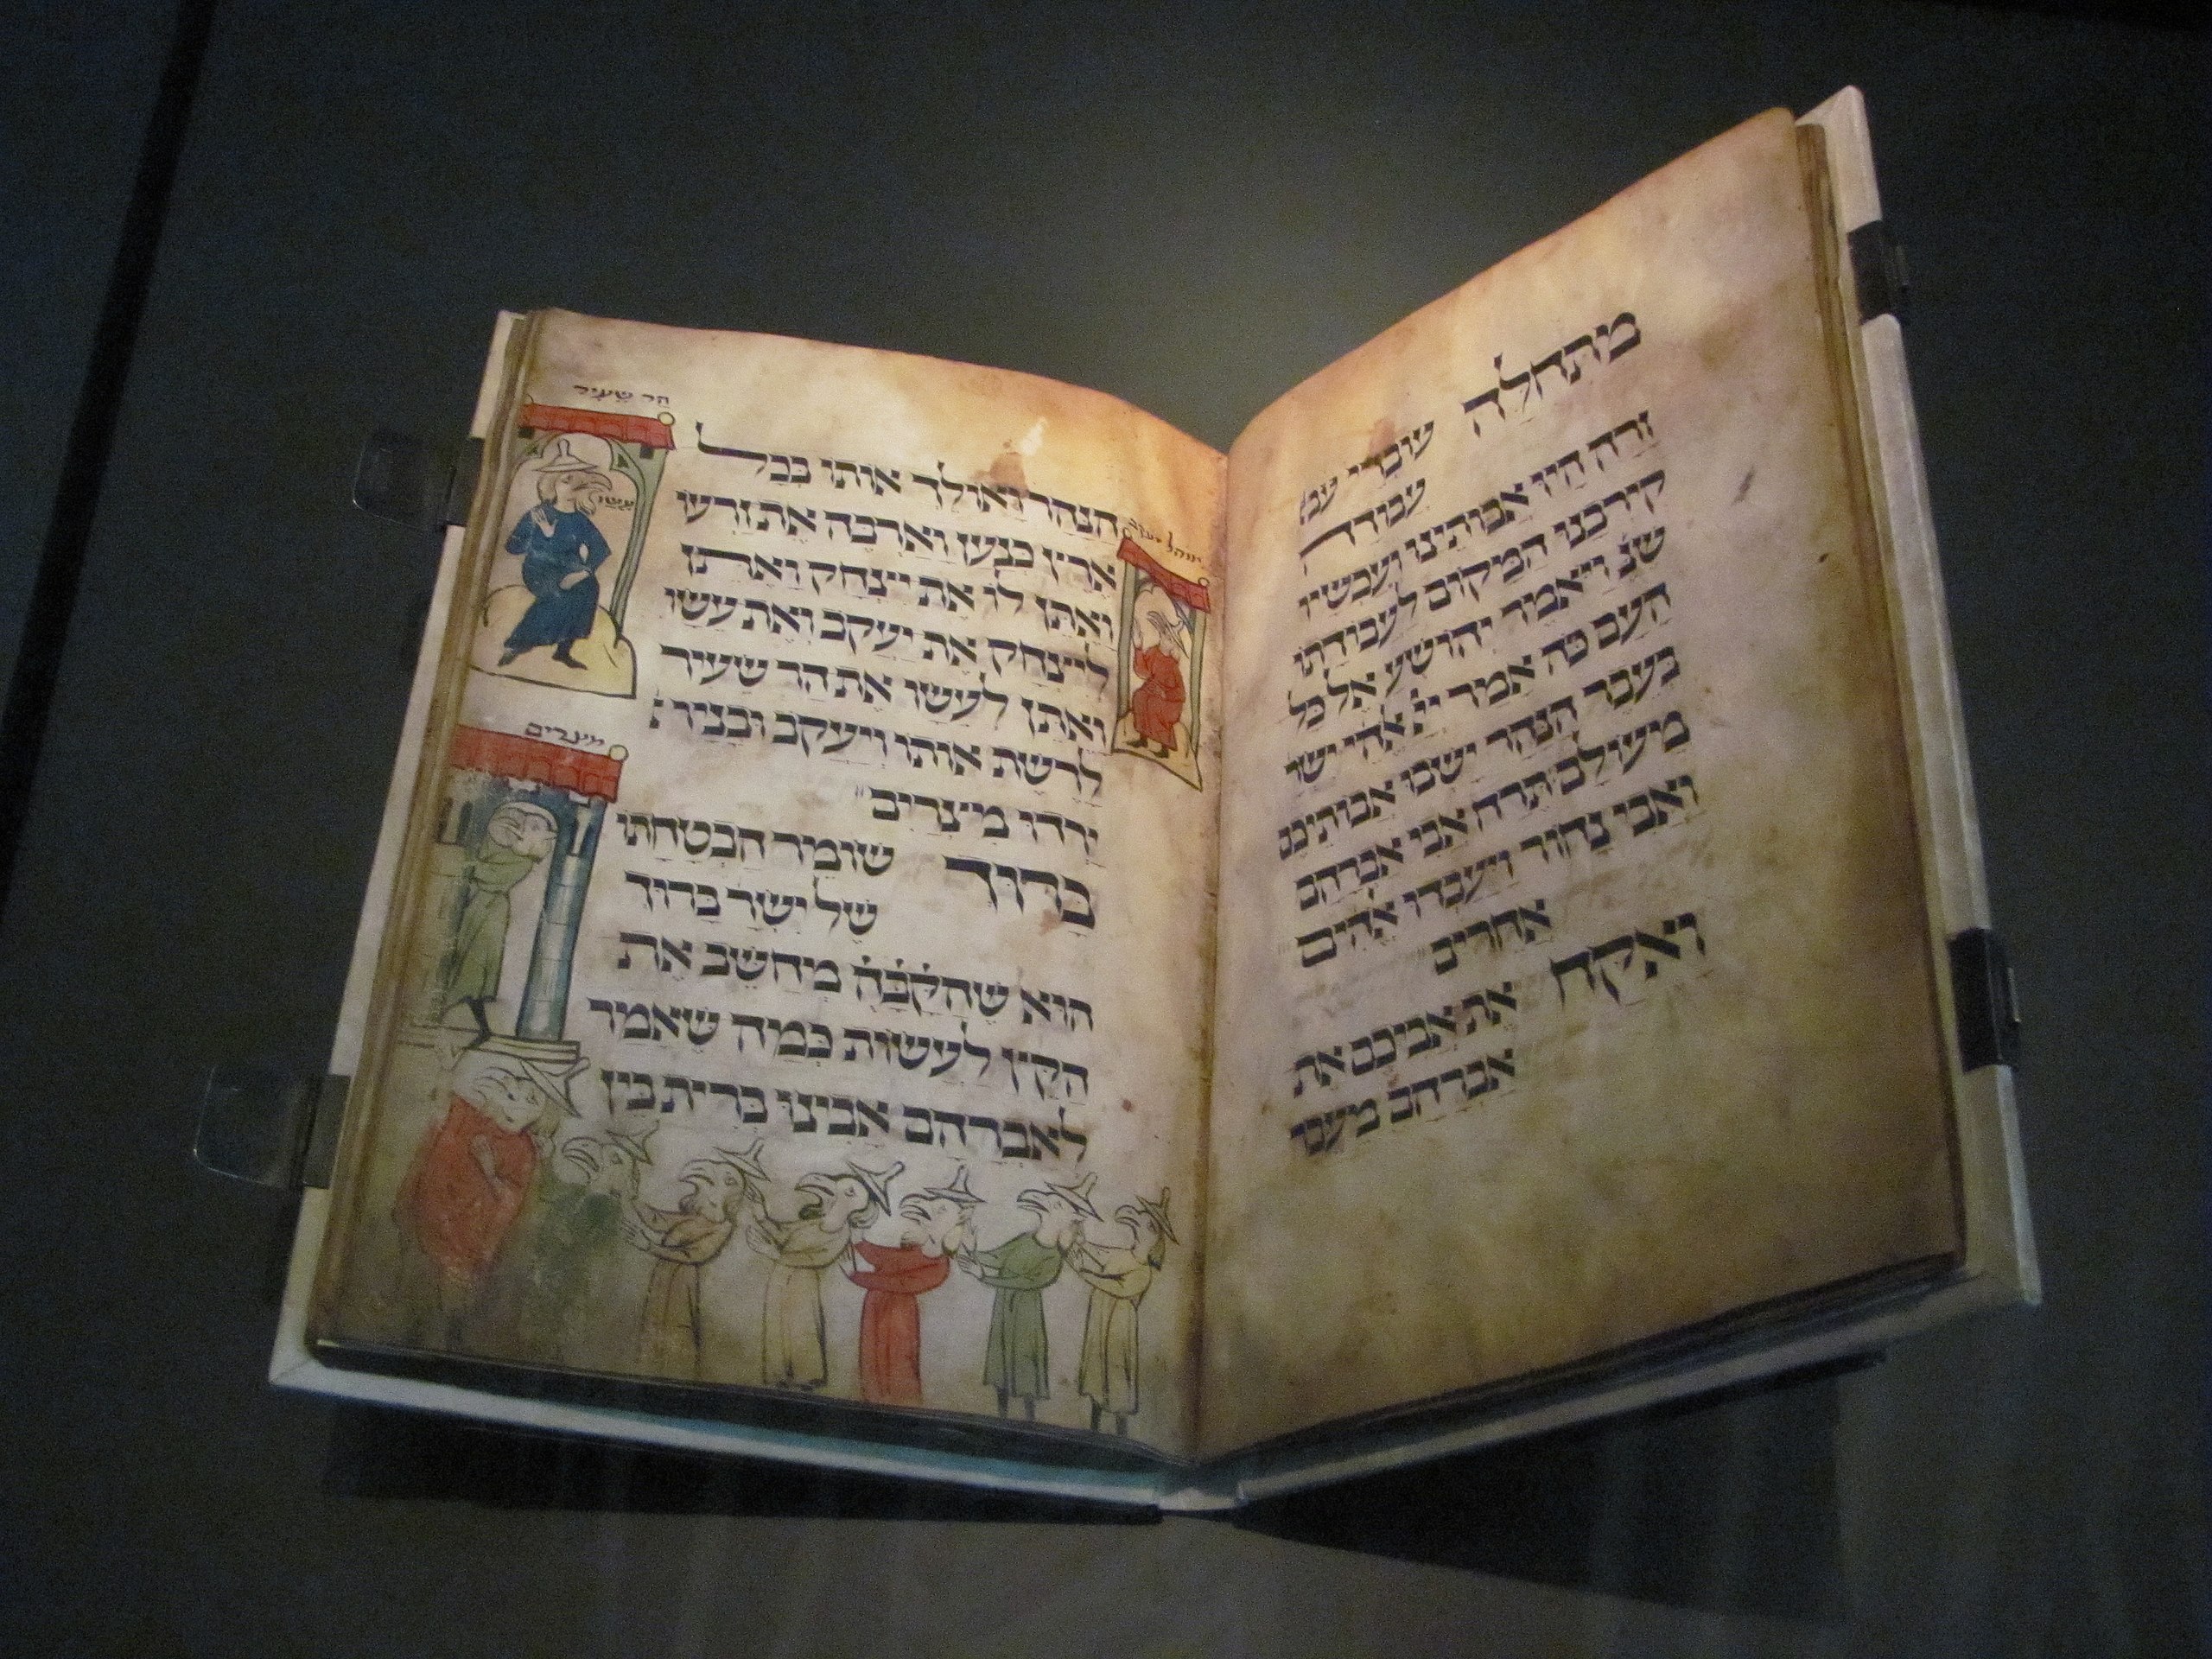 מתחלה עובדי עב
עבודה
זרה היו אבותינו ועכשיו
קירבנו המקום לעבודתו
שנ׳ ויאמר יהושע אל כל
העם כה אמר ייי אלהי ישר
בעבר הנהר ישבו אבותיכם
מעולם תרח אבי אברהם
ואבי נחור ויעבדו אלהים
אחרים
ואקח את אביכם את
אברהם מעבר
הר שעיר
הנהר ואולך אותו בכל
ארץ כנען וארבה את זרעו
ואתן לו את יצחק ואתן
ליצחק את יעקב ואת עשו
ואתן לעשו את הר שעיר
לרשת אותו ויעקב ובניו
ירדו מצרים
ברוך שומר הבטחתו
של ישר ברוך
הוא שהקבה מחשב את
הקץ לעשות כמה שאמר
לאברהם אבינו ברית בין
עשו
מצרים